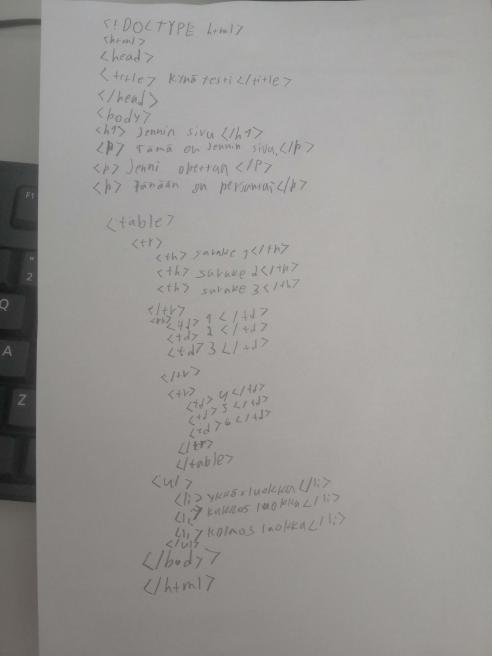 <!DOCTYPE html>
<html>
<head>
<title> Kynä testi </title>
</head>
<body>
<h1> Jennin sivu </h1>
<p> Tämä on Jennin sivu. </p>
<p> Jenni opettaa </p>
<p> Tänään on perjantai </p>
<table>
<tr>
<th> sarake 1 </th>
<th> sarake 2 </th>
<th> sarake 3 </th>
</tr>
<td> 1 </td>
<td> 2 </td>
<td> 3 </td>
</tr>
<tr>
<td> 4 </td>
<td> 5 </td>
<td> 6 </td>
</tr>
</table>
<ul>
<li> ykkösluokka </li>
<li> kakkos luokka </li>
<li> kolmos luokka </li>
</ul>
</body>
</html>
F1
"
2
Q
A
Z